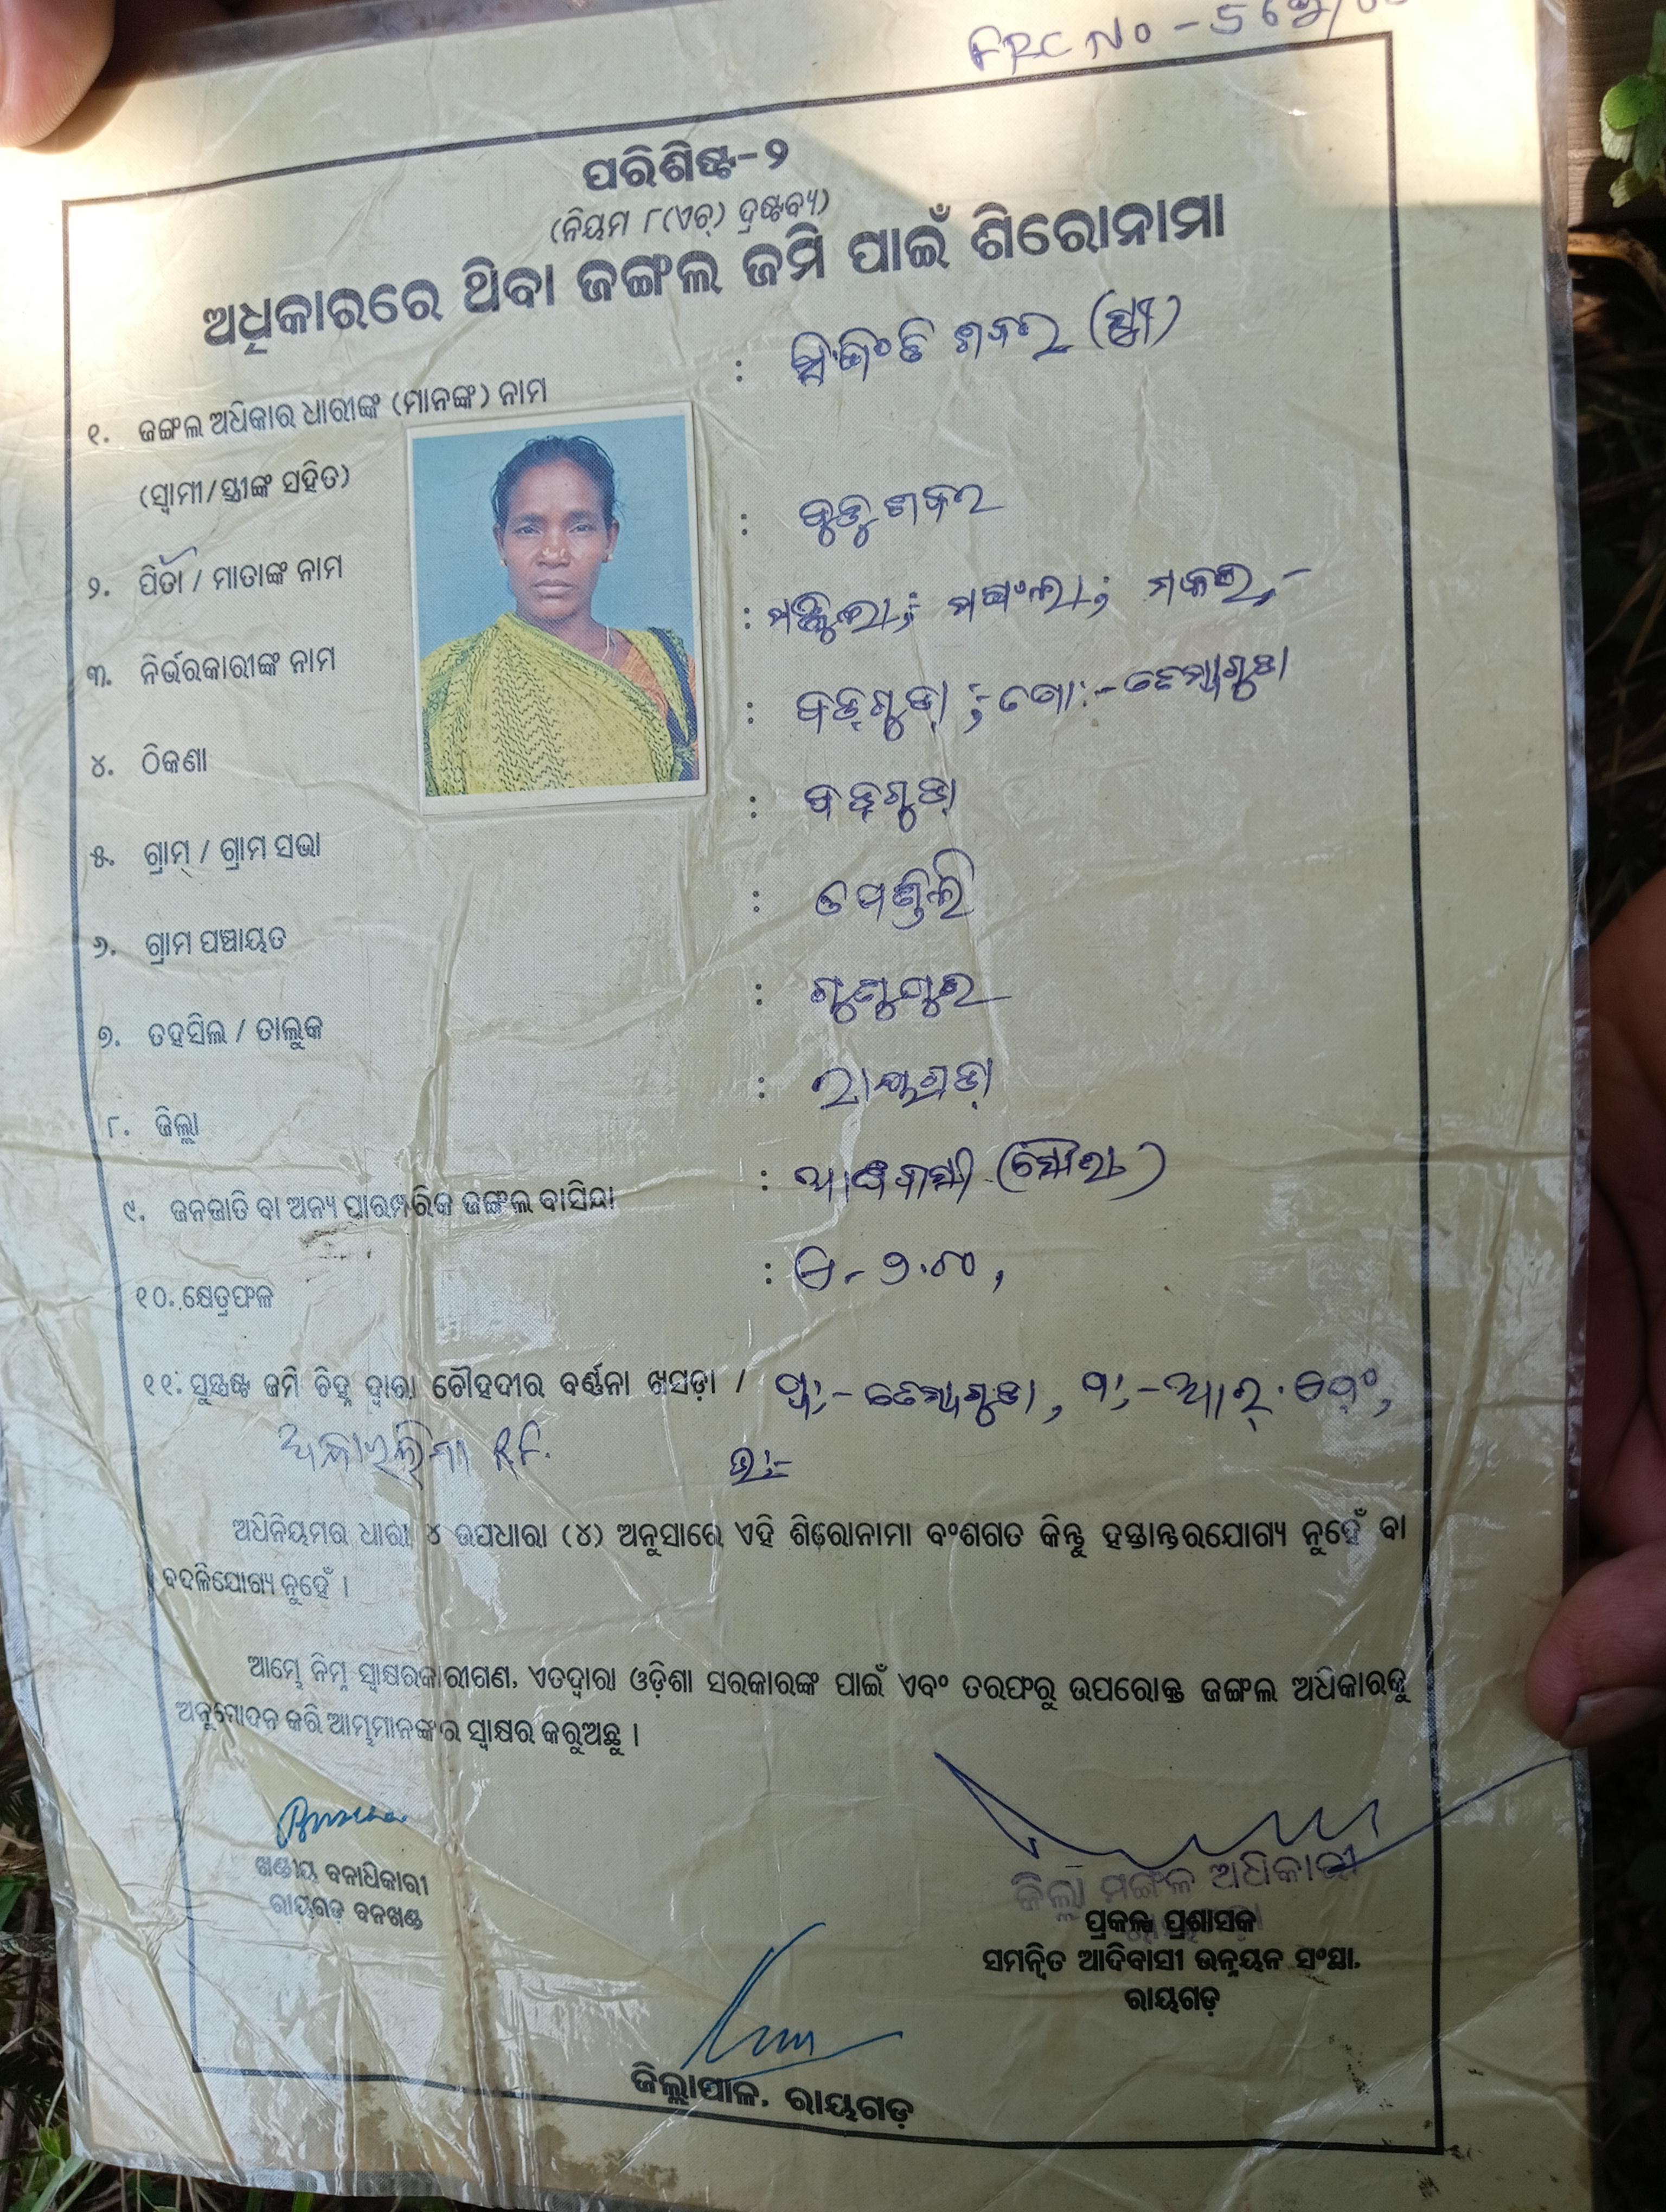 FRC No - 
ପରିଶିଷ୍ଟ-୨
(ନିୟମ ୮(ଏଚ୍) ଦ୍ରଷ୍ଟବ୍ୟ)
ଅଧିକାରରେ ଥିବା ଜଙ୍ଗଲ ଜମି ପାଇଁ ଶିରୋନାମା
୧. ଜଙ୍ଗଲ ଅଧିକାର ଧାରୀଙ୍କ (ମାନଙ୍କ) ନାମ : ଶବର (ସ୍ତ୍ରୀ)
(ସ୍ୱାମୀ/ସ୍ତ୍ରୀଙ୍କ ସହିତ)
୨. ପିତା / ମାତାଙ୍କ ନାମ : ଶବର
୩. ନିର୍ଭରକାରୀଙ୍କ ନାମ : ମଞ୍ଜୁଳା; ମଙ୍ଗଳା;
୪. ଠିକଣା : ବଡ଼ଗୁଡ଼ା ;
୫. ଗ୍ରାମ / ଗ୍ରାମ ସଭା : ବଡ଼ଗୁଡ଼ା
୬. ଗ୍ରାମ ପଞ୍ଚାୟତ :
୭. ତହସିଲ / ତାଲୁକ : ଗୁଣୁପୁର
୮. ଜିଲ୍ଲା : ରାୟଗଡ଼ା
୯. ଜନଜାତି ବା ଅନ୍ୟ ପାରମ୍ପରିକ ଜଙ୍ଗଲ ବାସିନ୍ଦା : ଆଦିବାସୀ (ସୌରା)
୧୦. କ୍ଷେତ୍ରଫଳ :
୧୧. ସୁସ୍ପଷ୍ଟ ଜମି ଚିହ୍ନ ଦ୍ୱାରା ଚୌହଦୀର ବର୍ଣ୍ଣନା ଖସଡ଼ା /
R.F. ଉ:-
ଅଧିନିୟମର ଧାରା ୪ ଉପଧାରା (୪) ଅନୁସାରେ ଏହି ଶିରୋନାମା ବଂଶଗତ କିନ୍ତୁ ହସ୍ତାନ୍ତରଯୋଗ୍ୟ ନୁହେଁ ବା
ବଦଳିଯୋଗ୍ୟ ନୁହେଁ ।
ଆମ୍ଭେ ନିମ୍ନ ସ୍ୱାକ୍ଷରକାରୀଗଣ, ଏତଦ୍ୱାରା ଓଡ଼ିଶା ସରକାରଙ୍କ ପାଇଁ ଏବଂ ତରଫରୁ ଉପରୋକ୍ତ ଜଙ୍ଗଲ ଅଧିକାରକୁ
ଅନୁମୋଦନ କରି ଆମ୍ଭମାନଙ୍କର ସ୍ୱାକ୍ଷର କରୁଅଛୁ ।
ଖଣ୍ଡୀୟ ବନାଧିକାରୀ
ରାୟଗଡ଼ ବନଖଣ୍ଡ
ଜିଲ୍ଲା ମଙ୍ଗଳ ଅଧିକାରୀ
ପ୍ରକଳ୍ପ ପ୍ରଶାସକ
ସମନ୍ୱିତ ଆଦିବାସୀ ଉନ୍ନୟନ ସଂସ୍ଥା,
ରାୟଗଡ଼
ଜିଲ୍ଲାପାଳ, ରାୟଗଡ଼